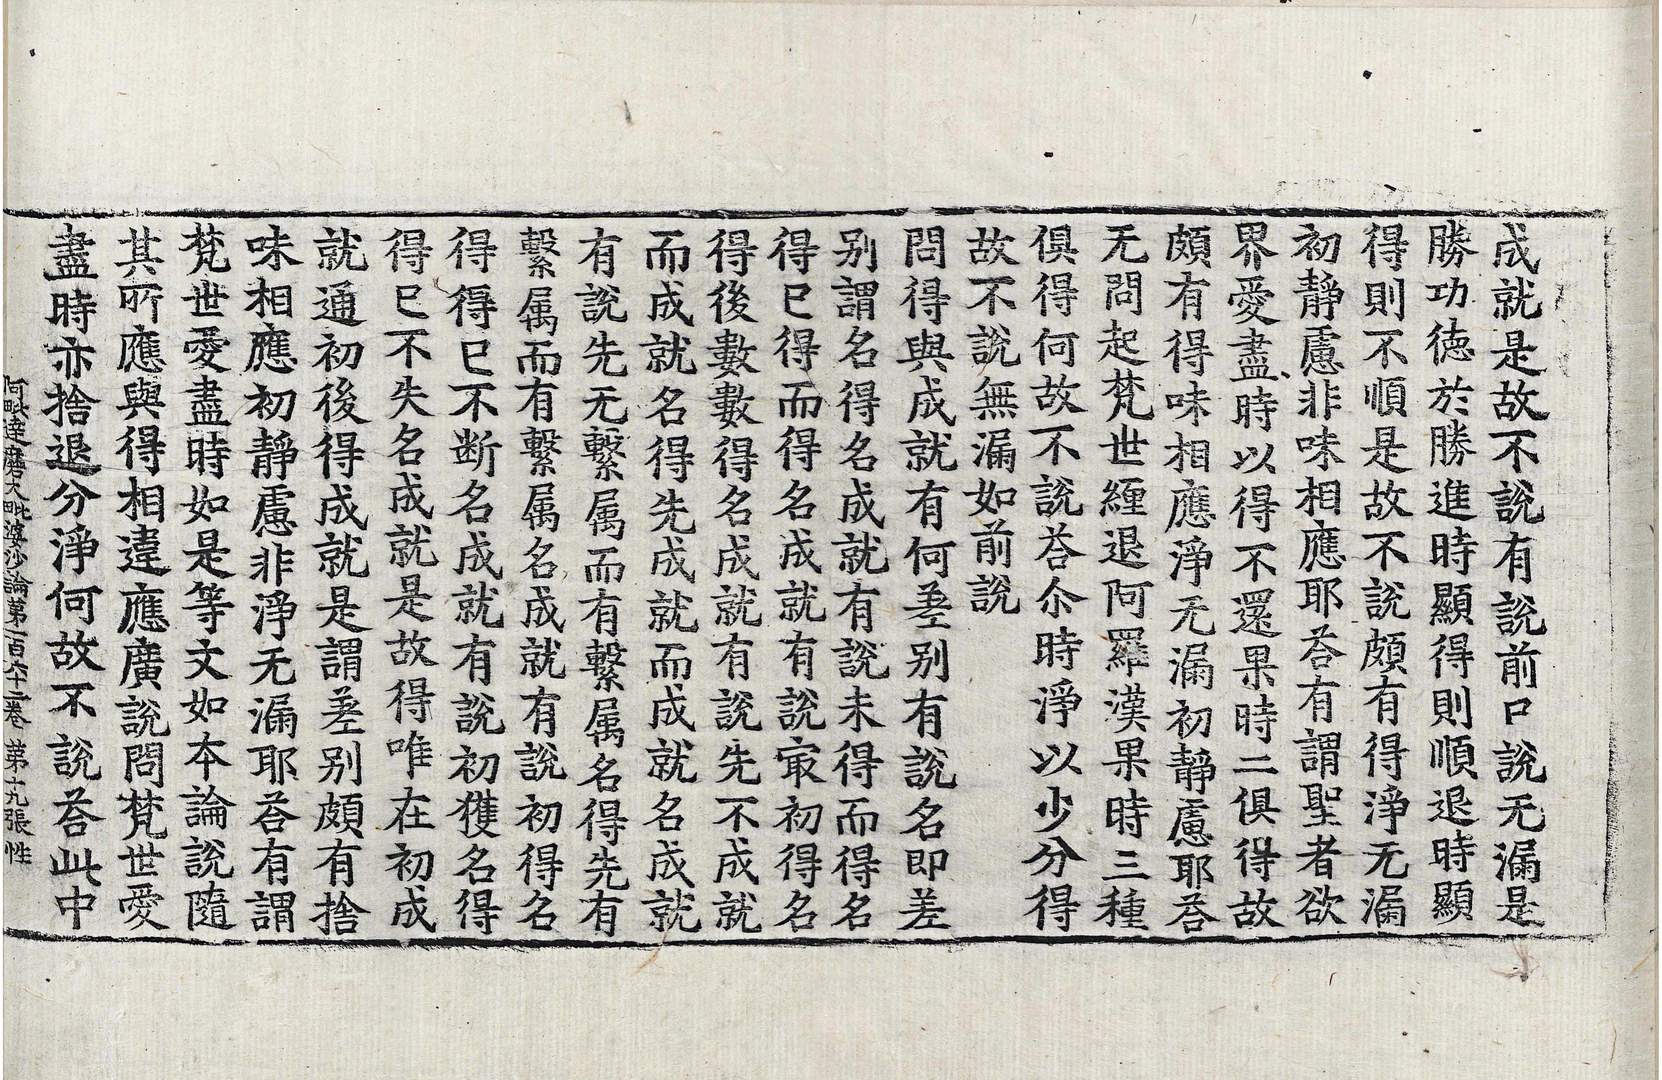 成就是故不說有說前已說无漏是
勝功德於勝進時顯得則順退時顯
得則不順是故不說頗有得淨无漏
初靜慮非味相應耶荅有謂聖者欲
界愛盡時以得不還果時二俱得故
頗有得味相應淨无漏初靜慮耶荅
无問起梵世纏退阿羅漢果時三種
俱得何故不說荅尒時淨以少分得
故不說無漏如前說
問得與成就有何差别有說名即差
别謂名得名成就有說未得而得名
得已得而得名成就有說㝡初得名
得後數數得名成就有說先不成就
而成就名得先成就而成就名成就
有說先无繫属而有繫属名得先有
繫属而有繫属名成就有說初得名
得得已不断名成就有說初獲名得
得已不失名成就是故得唯在初成
就通初後得成就是謂差别頗有捨
味相應初靜慮非淨无漏耶荅有謂
梵世愛盡時如是等文如本論說隨
其所應與得相違應廣說問梵世愛
盡時亦捨退分淨何故不說荅此中
阿毗達磨大毗婆沙論第一百六十二卷 第十九張 性